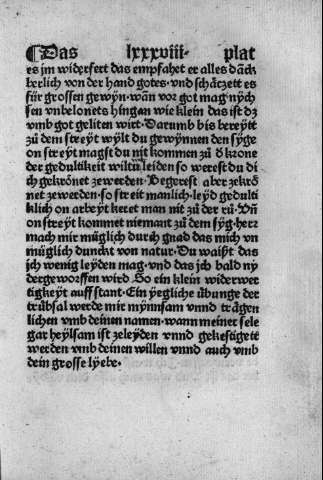 ¶ Das lxxxviii· plat
es jm widerfert das empfahet er alles dãck
berlich von der hand gotes· vnd schåtzett es
für grossen gewyn· wañ vor got mag nych
sen vnbelonets hingan wie klein das ist dz
vmb got geliten wirt· Darumb bis bereytt
zů dem streyt wylt du gewynnen den syge
on streyt magst du nit kommen zů đ krone
der gedultikeit wiltu leiden so werest du di
ch gekrönet zewerden· Begerest aber zekrö
net zewerden· so streit manlich· leyd gedulti
klich on arbeyt keret man nit zů der rů· Vñ
on streyt kommet niemant zů dem syg· herr
mach mir müglich durch gnad das mich vn
müglich dunckt von natur· Du waißt das
ich wenig leyden mag· vnd das jch bald ny
dergeworffen wird· So ein klein widerwer
tigkeyt auff stant· Ein yegliche übunge der
trübsal werde mir mynnsam vnnd trägen
lichen vmb deinen namen· wann meiner sele
gar heylsam ist zeleyden vnnd gekestigett
werden vmb deinen willen vnnd auch vmb
dein grosse lyebe·